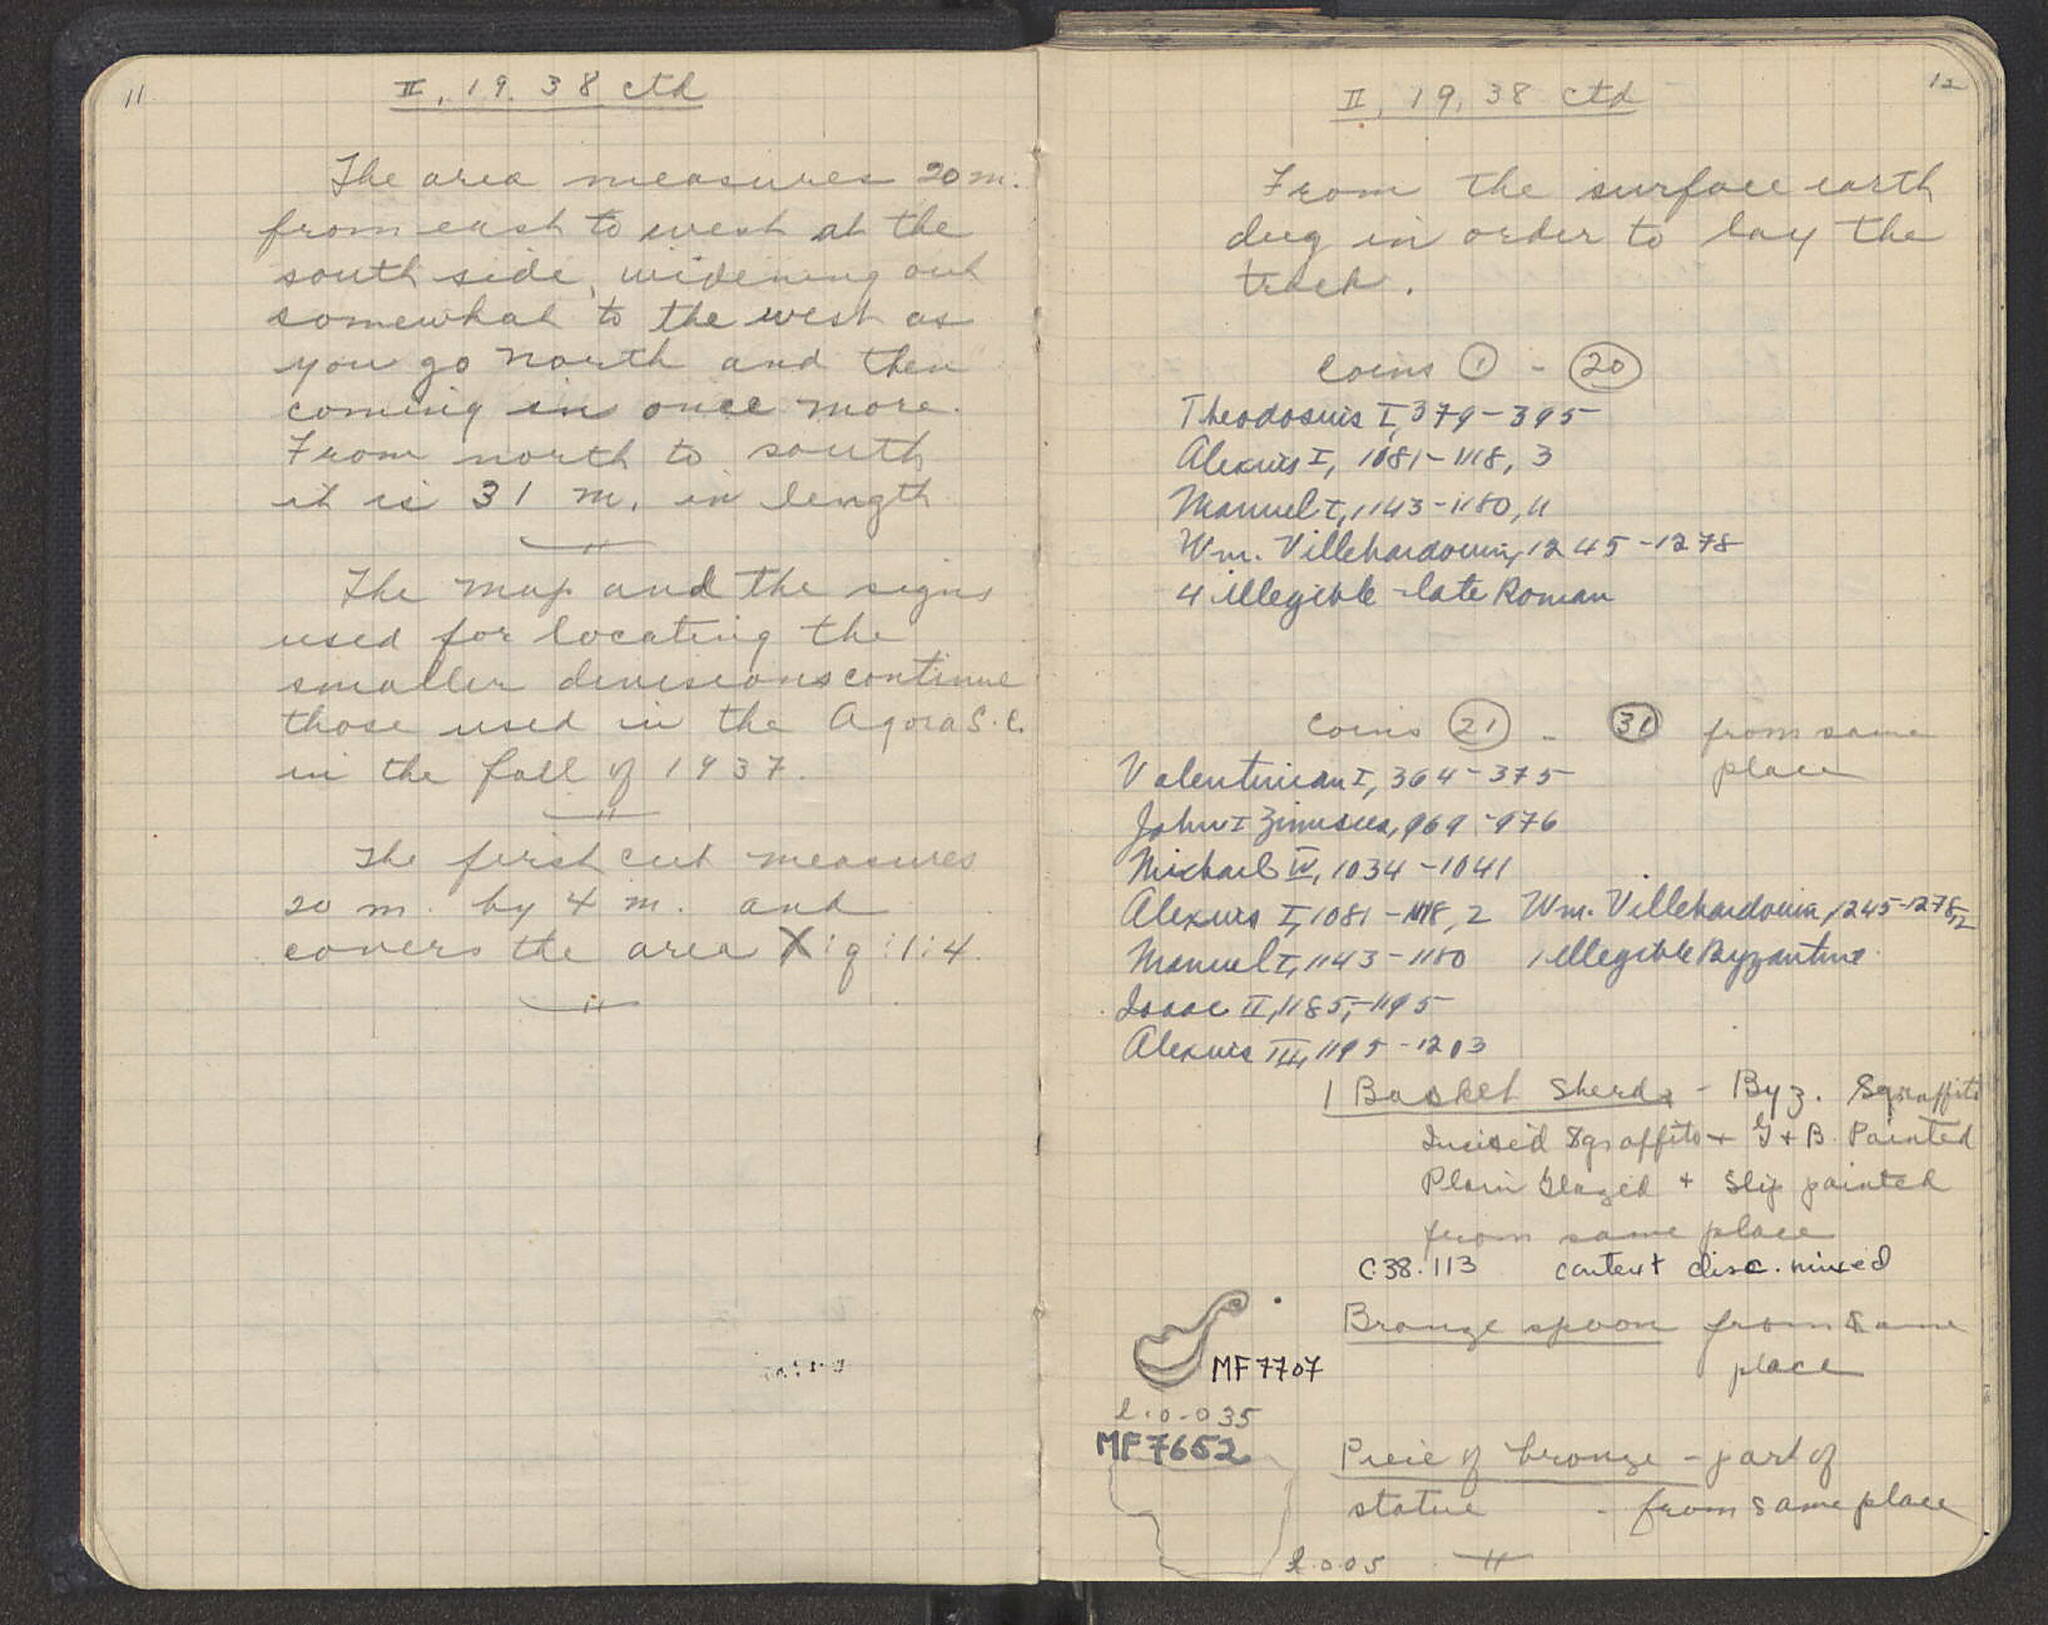 11
II, 19. 38 ctd
The area measures 20 m.
from east to west at the
south side, widening out
somewhat to the west as
you go north and then
coming in once more.
From north to south
it is 31 m. in length
The map and the signs
used for locating the
smaller divisions continue
those used in the Agora S. C.
in the fall of 1937.
The first cut measures
20 m. by 4 m. and
covers the area X:q:1:4.
12
II, 19, 38 ctd
From the surface earth
dug in order to lay the
track.
Coins 1 - 20
Theodosius I, 379-395
Alexius I, 1081-1118, 3
Manuel I, 1143-1180, 11
Wm. Villehardouin, 1245-1278
4 illegible - late Roman
Coins 21 - 31 from same
place
Valentinian I, 364-375
John I Zimisces, 969-976
Michael IV, 1034-1041
Alexius I, 1081-1118, 2 Wm. Villehardouin, 1245-1278, 2
Manuel I, 1143-1180 1 illegible Byzantine
Isaac II, 1185-1195
Alexius III, 1195-1203
1 Basket Sherds - Byz. Sgraffito
Incised Sgraffito + G + B Painted
Plain Glazed + Slip painted
from same place
C.38.113 context disc. mixed
Bronze spoon from same
place
MF 7707
l. 0.035
MF 7652
Piece of bronze - part of
statue - from same place
l. 0.05